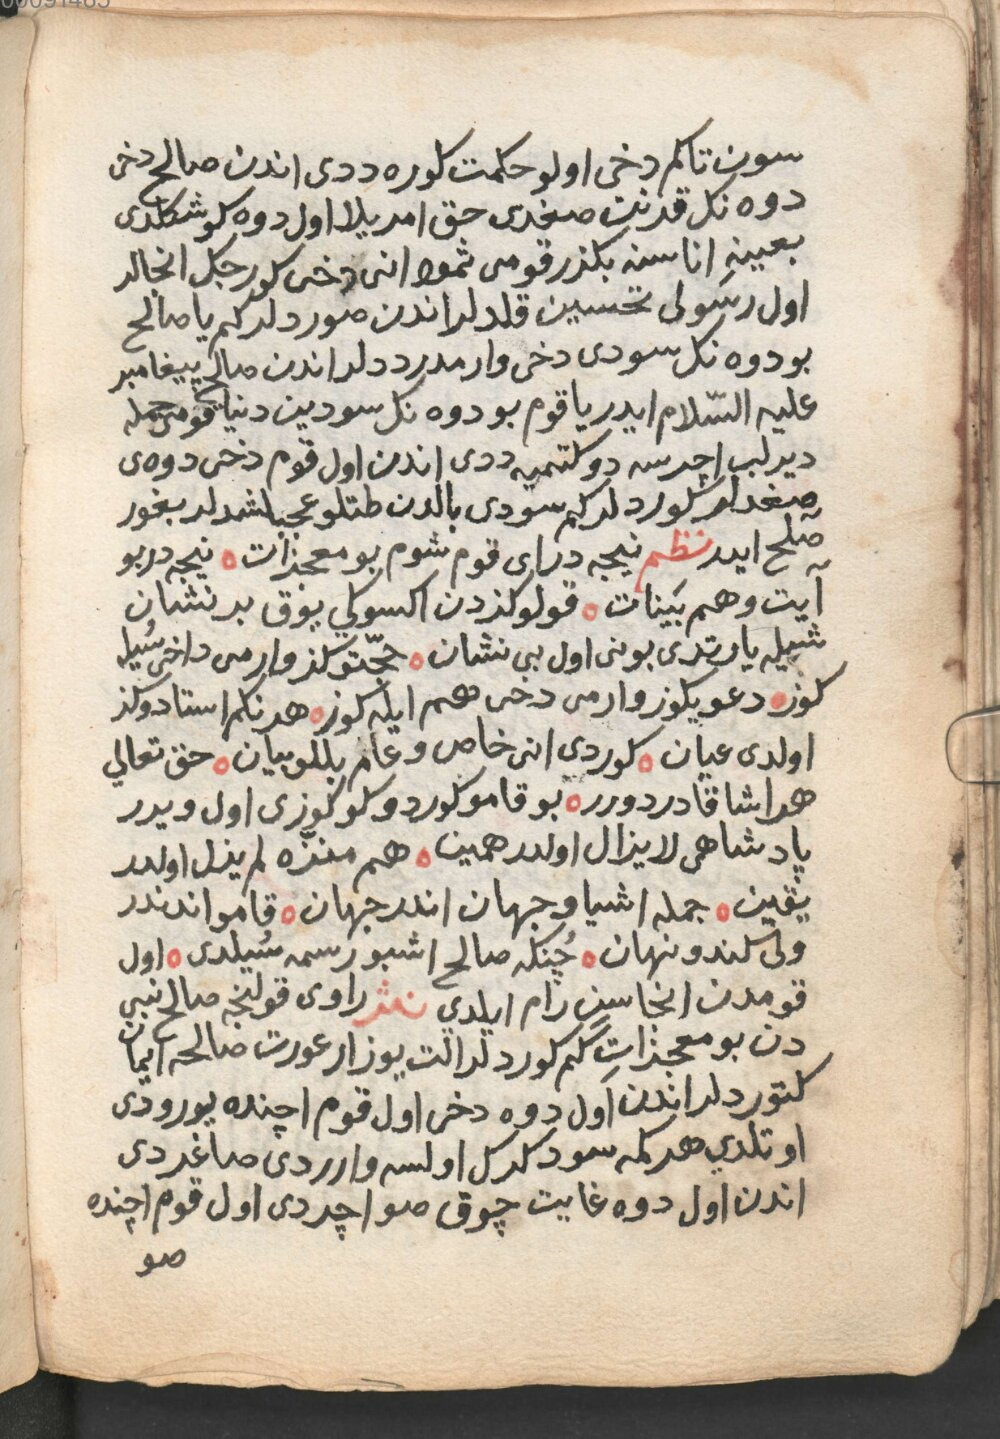 سون تاكم دخی اولو حكمت كوره ددی اندن صالح دخی
دوه نك قدرتن صغدی حق امریلا اول دوه كوشكلدی
بعینه اناسنه بكذر قومی ثمود انی دخی كورجك انجالر
اول رسولی تحسین قلدلر اندن صوردلر كم یا صالح
بو دوه نك سودی دخی وارمدر ددلر اندن صالح پیغامبر
علیه السّلام ایدر یا قوم بو دوه نك سودین دنیا قومی جمله
دیرلب اچرسه دوكتمیه ددی اندن اول قوم دخی دوه ی
صغدلر كوردلر كم سودی بالدن طتلو عجبلشدلر بغور
صلح ایدر نظم نیجه در ای قوم شوم بو معجذات ه نیجه در بو
آیت وهم بینات ه قولوكزدن اكسوكی یوق بر نشان
شیله یارتدی بونی اول بی نشان ه حجّتوكز وارمی داخی سُیله
كوز ه دعویكوز وارمی دخی هم ایله كوز ه هر نكم استادوكز
اولدی عیان ه كوردی انی خاص و عام بللو بیان ه حق تعالی
هر اشا قادر دورر ه بو قامو كوردوكلوكوزی اول ویدر
پادشاهی لایزال اولدر همین ه هم منزّه لم یزل اولدر
یقین ه جمله اشیا و جهان اندر جهان ه قامو اندندر
ولی كندو نهان ه چُنكه صالح اشبو رسمه سُیلدی ه اول
قومدن انجاسن رام ایلدی نثر راوی قولنجه صالح نبی
دن بو معجذات كم كوردلر الت یوز ار عورت صالحه ایمان
كتوردلر اندن اول دوه دخی اول قوم اچنده یورودی
اوتلدی هر كمه سود كركل اولسه وارردی صاغردی
اندن اول دوه غایت چوق صو اچردی اول قوم اچنده
صو